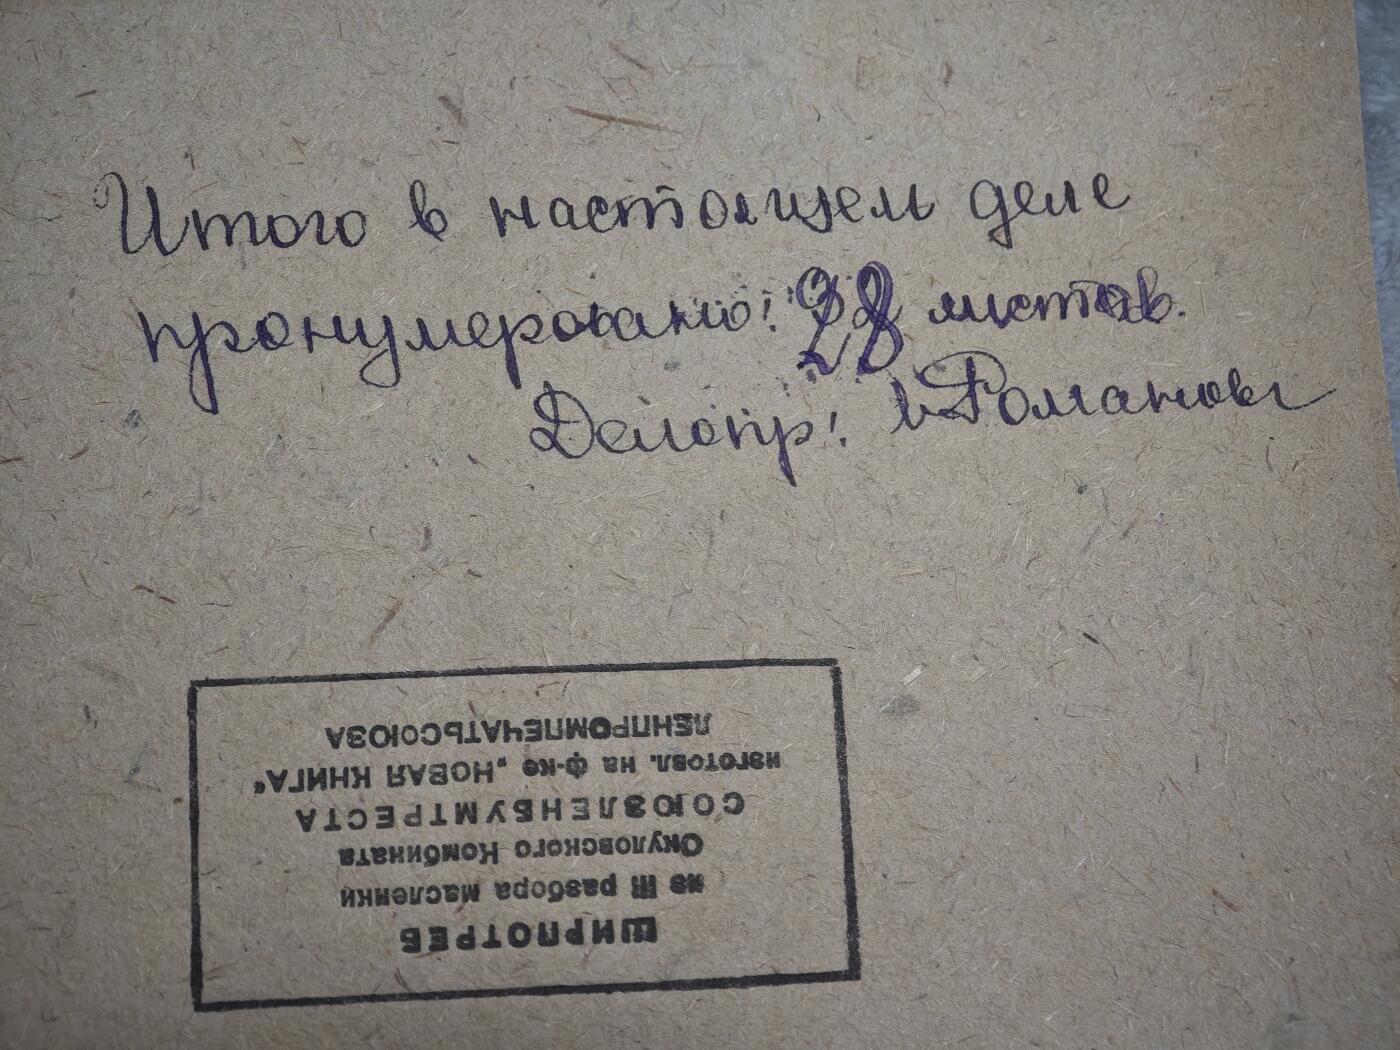 Итого в настоящем деле
пронумеровано: 28 листов.
Делопр: Романов
ШИРПОТРЕБ
из III разбора масленки
Окуловского Комбината
СОЮЗЛЕНБУМТРЕСТА
изготовл. на ф-ке „НОВАЯ КНИГА"
ЛЕНПРОМПЕЧАТЬСОЮЗА